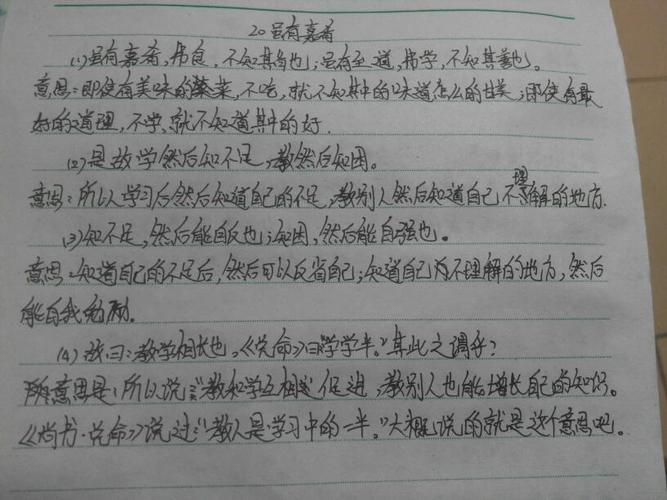 20 虽有嘉肴
(1)虽有嘉肴,弗食,不知其旨也;虽有至道,弗学,不知其善也。
意思:即使有美味的菜,不吃,就不知其中的味道怎么的甘美;即使有最
好的道理,不学,就不知道其中的好.
(2)是故学然后知不足,教然后知困。
意思:所以学习后然后知道自己的不足,教别人然后知道自己不理解的地方.
(3)知不足,然后能自反也;知困,然后能自强也。
意思:知道自己的不足后,然后可以反省自己;知道自己不理解的地方,然后
能自我勉励.
(4)故曰:教学相长也。《兑命》曰"学学半。"其此之谓乎?
意思是:所以说:"教和学互相促进,教别人也能增长自己的知识。
《尚书·兑命》说过:"教人是学习中的一半。"大概说的就是这个意思吧。